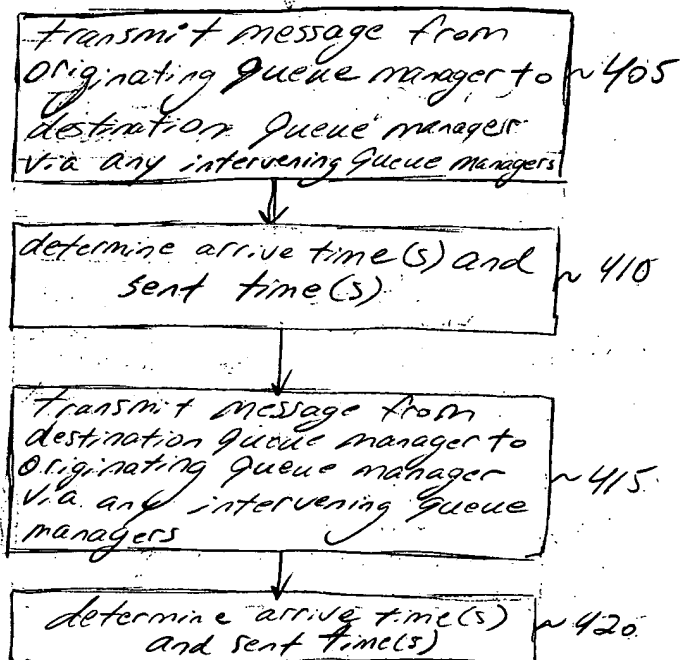 transmit message from
originating queue manager to ~405
destination queue manager
via any intervening queue managers
determine arrive time(s) and
sent time(s) ~410
transmit message from
destination queue manager to
originating queue manager
via any intervening queue ~415
managers
determine arrive time(s)
and sent time(s) ~420